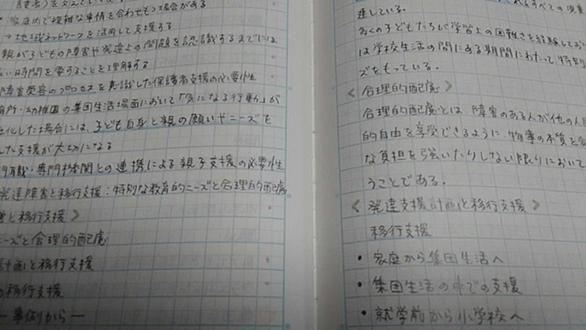 家庭内で複雑な事情を合わせもつ場合がある
→地域ネットワークを活用して支援する
親が子どもの障害や発達上の問題を認識するまでには
い時間を要することを理解する
障害受容のプロセスを意識した保護者支援の必要性
育所・幼稚園の集団生活場面において「気になる行動」が
化した場合には、子ども自身と親の願いやニーズを
した支援が大切になる
・専門機関との連携による親子支援の必要性
発達障害と移行支援:特別な教育的ニーズと合理的配慮
害と移行支援
ニーズと合理的配慮
計画と移行支援
の移行支援
―事例から―
達している。
多くの子どもたちが学習上の困難を経験してお
は学校生活の間にある期間にわたって特別
ズをもっている。
《合理的配慮》
合理的配慮とは、障害のある人が他の人
的自由を享受できるように、物事の本質を
な負担を強いたりしない限りにおいて
うことである。
《発達支援計画と移行支援》
移行支援
・家庭から集団生活へ
・集団生活の中での支援
・就学前から小学校へ